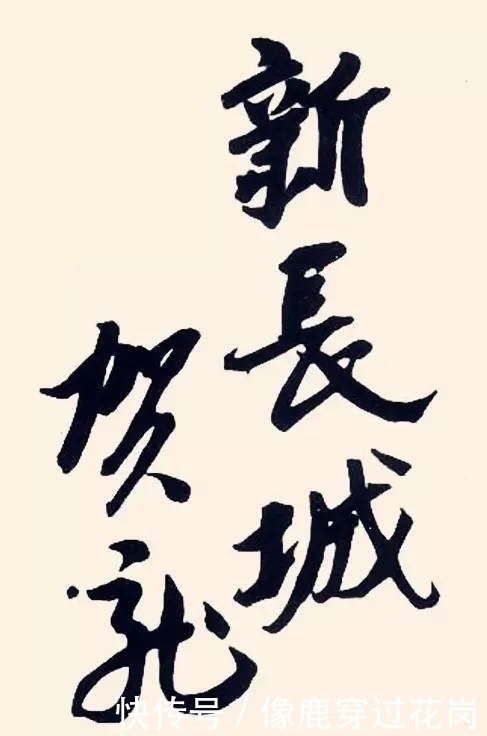 新長城
贺龙
快传号/像鹿穿过花岗